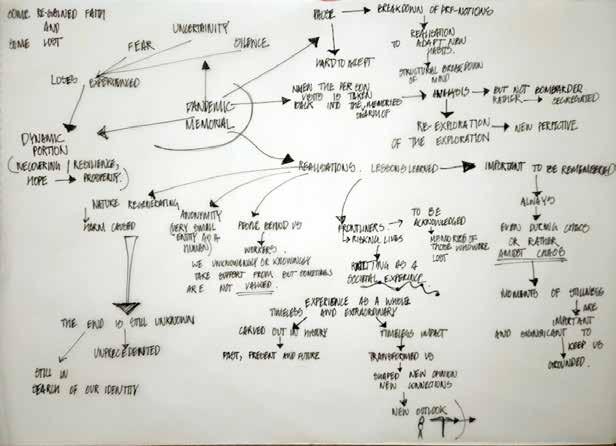 SOME RE-GAINED FAITH
AND
SOME LOST
FEAR
UNCERTAINITY
SILENCE
LOSES EXPERIENCED
PANDEMIC
MEMORIAL
DYNAMIC
PORTION
(RECOVERING / RESILIENCE,
HOPE → PROSPERITY.)
PAUSE → BREAKDOWN OF PRE-NOTIONS
HARD TO ACCEPT
REALISATION
TO ADAPT NEW
HABITS.
STRUCTURAL BREAKDOWN
OF MIND
WHEN THE PERSON
VISITS IS TAKEN
BACK INTO THE MEMORIES
ANALYSIS → BUT NOT BOMBARDED
RATHER → SEGREGATED
RE-EXPLORATION
OF THE EXPLORATION → NEW PERPECTIVE
REALISATIONS. LESSONS LEARNED → IMPORTANT TO BE REMEMBERED
NATURE REGENERATING
HARM CAUSED
ANONYMITY
(VERY SMALL
ENTITY AS A
HUMAN)
PEOPLE BEHIND US
WORKERS.
WE UNKNOWINGLY OR KNOWINGLY
TAKE SUPPORT FROM BUT SOMETIMES
ARE NOT VALUED.
FRONTLINERS →
RISKING LIVES
TO BE
ACKNOWLEDGED
MEMORIZE OF
THOSE WHO HAVE
LOST
AS A
SOCIETAL EXPERIENCE
ALWAYS
EVEN DURING CHAOS
OR RATHER
AMIDST CHAOS
MOMENTS OF STILLNESS
ARE
IMPORTANT
AND SIGNIFICANT TO
KEEP US
GROUNDED.
THE END IS STILL UNKNOWN
UNPRECEDENTED
STILL IN
SEARCH OF OUR IDENTITY
EXPERIENCE AS A WHOLE
TIMELESS AND EXTRAORDINARY
CARVED OUT IN HISTORY
PAST, PRESENT AND FUTURE
TIMELESS IMPACT
TRANSFORMED US
SHAPED NEW OPINION
NEW CONNECTIONS
NEW OUTLOOK